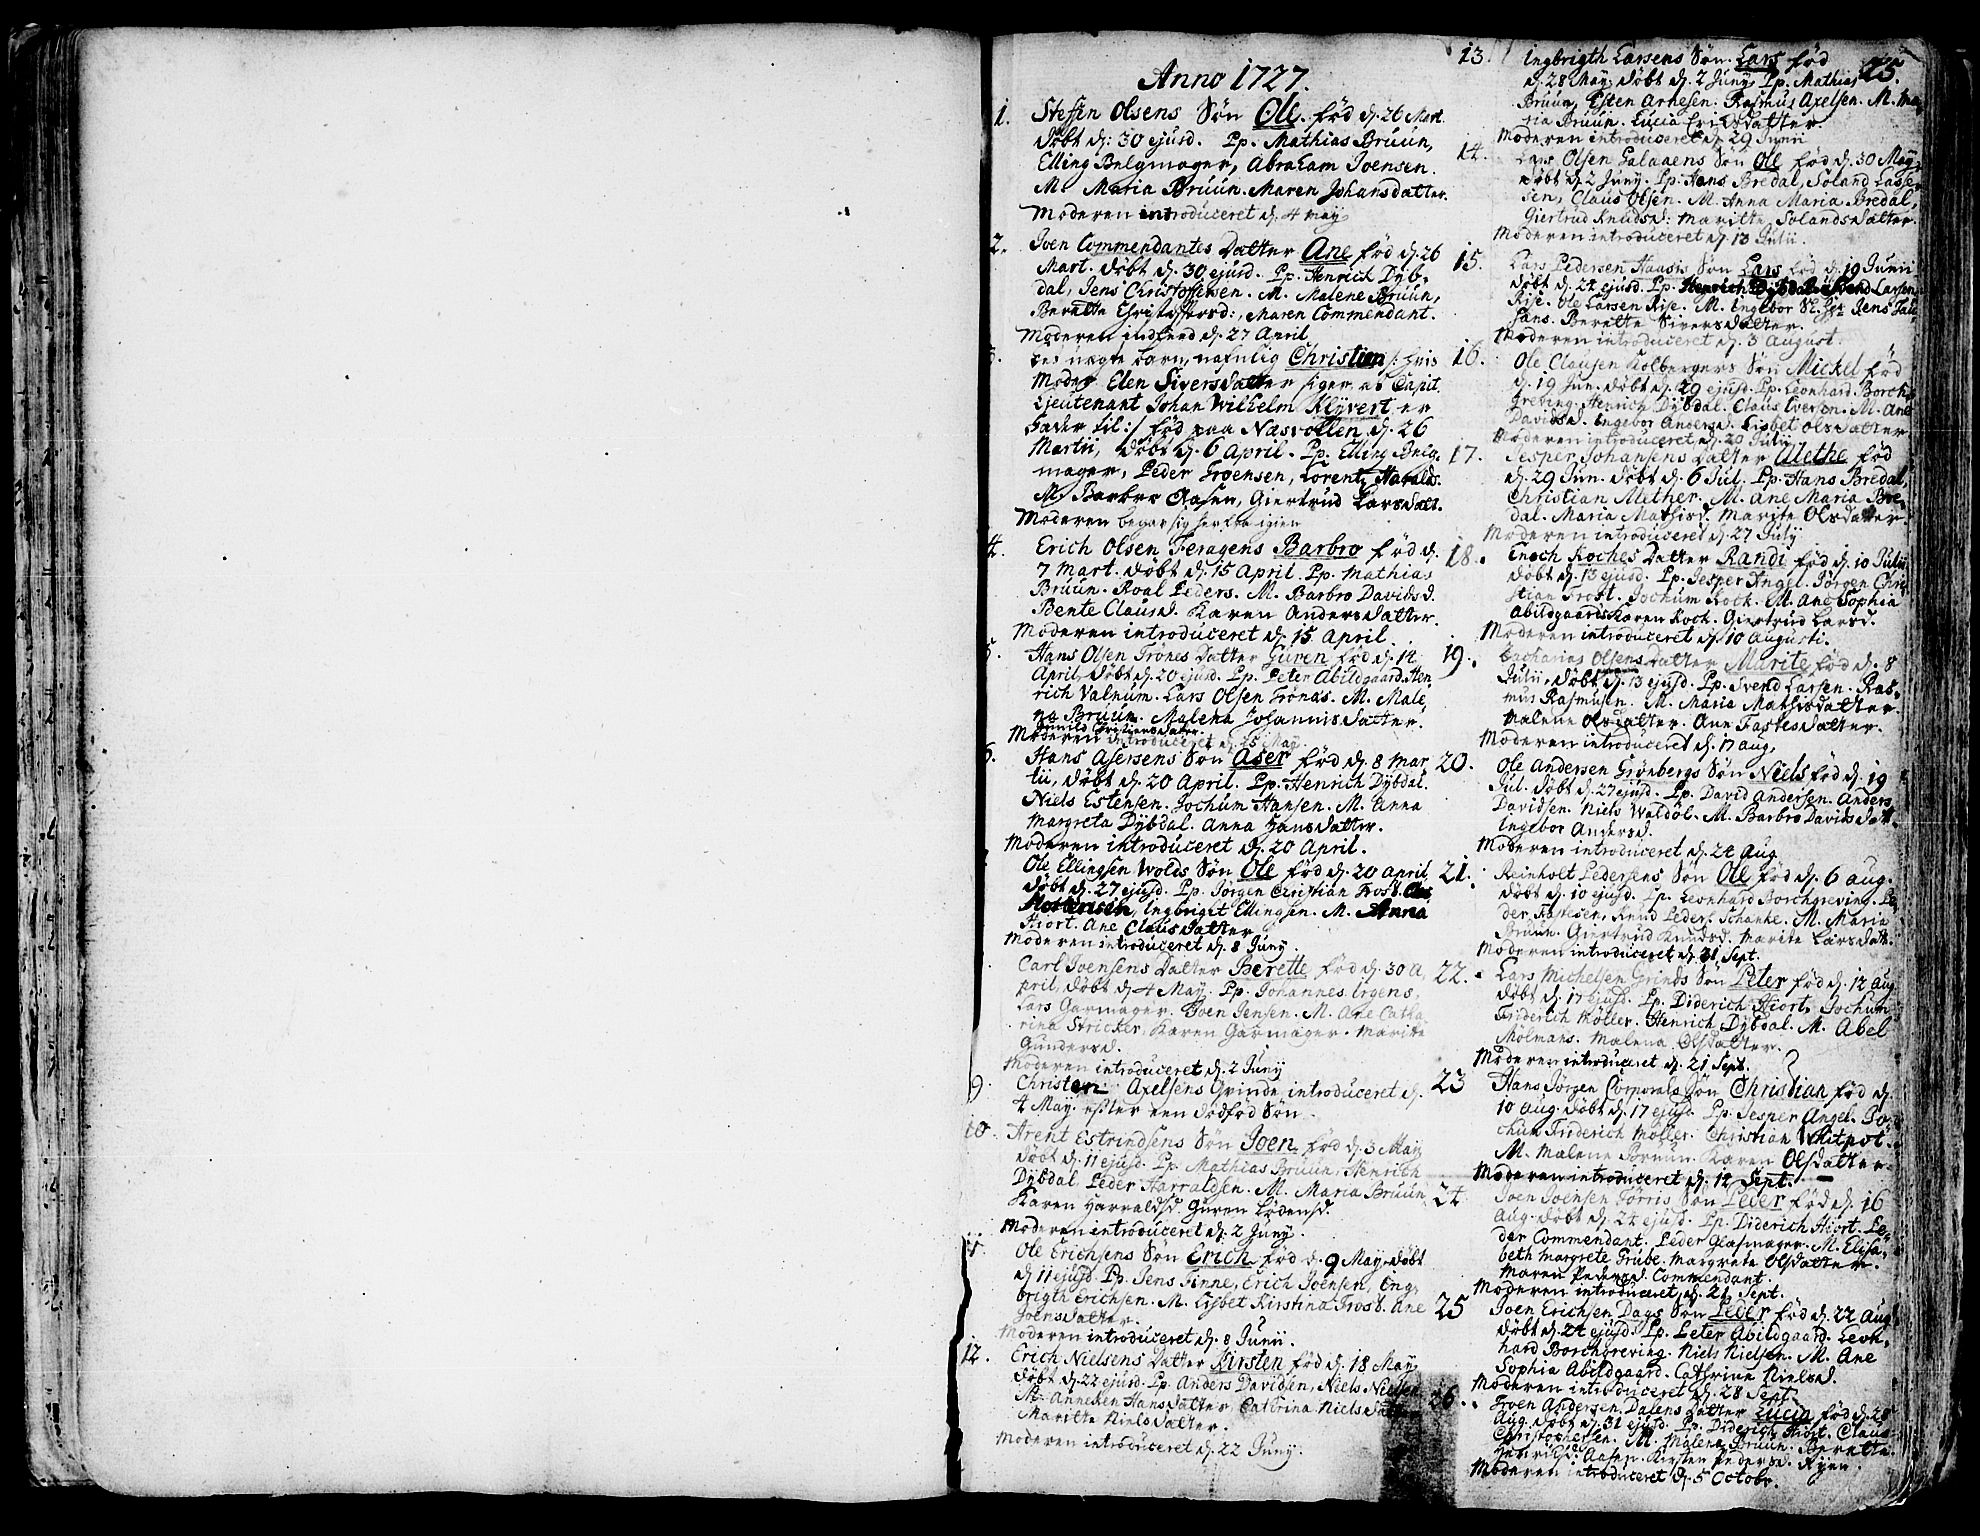 25.
Anno 1727.
1. Steffen Olsens Søn Ole. fød d. 26 Mart.
døbt d: 30 ejusd. Pp. Mathias Bruun,
Elling Belgmager, Abraham Joensen.
M. Maria Bruun. Maren Johansdatter.
Moderen introduceret d. 4 may
2. Joen Commendantes Datter Ane fød d. 26
Mart. døbt d. 30 ejusd. Pp. Henrich Dyb-
dal, Jens Christophersen. M. Malene Bruun,
Berette Christophersd:, Maren Commendant.
Moderen indleed d. 27 April
et nægte barn nafnlig Christian /: hvis
Moder Elen Siversdatter siger at Capit.
Lieutenant Johan Wilhelm Klyvert er
Fader til :/ fød paa Næsvollen d. 26
Martii, døbt d. 6 April. Pp. Elling Belg-
mager, Peder Groensen, Lorentz Haralds.
M. Barbro Aasen, Giertrud Larsdatt.
Moderen begav sig her fra igien
4. Erich Olsen Feragens Barbro fød d.
7 Mart. døbt d. 15 April. Pp. Mathias
Bruun. Roal Peders. M. Barbro Davidsd.
Bente Clausd. Karen Andersdatter.
Moderen introduceret d. 15 April.
5. Hans Olsen Trønes Datter Guren fød d. 14
April, døbt d. 20 ejusd. Pp. Peter Abildgaard. Hen
rich Valnum. Lars Olsen Trønæs. M. Male
na Bruun. Malena Johannisdatter.
Gunild Christiensdatter.
Moderen introduceret d. 25 May
6. Hans Asersens Søn Aser fød d. 8 Mar
tii, døbt d. 20 April. Pp. Henrich Dybdal.
Niels Estensen. Jochum Hansen. M. Anna
Margreta Dybdal. Anna Hansdatter.
Moderen introduceret d. 20 April.
Ole Ellingsen Wolds Søn Ole fød d. 20 april
døbt d. 27 ejusd. Pp. Jørgen Christian Frost. Ole
Mortensen, Ingbrigt Ellingsen. M. Anna
Hiort. Ane Clausdatter
Moderen introduceret d. 8 Juny.
Carl Joensens Datter Berette fød d. 30 A,
pril, døbt d. 4 May. Pp. Johannes Irgens,
Lars Garmager. Joen Jensen. M. Ane Catha
rina Stricker, Karen Garmager. Marite
Gundersd.
Moderen introduceret d. 2 Juny
9. Christen Axelsens Qvinde introduceret d.
4 May. efter een dødfød Søn.
10. Arent Estrindsens Søn Joen fød d. 3 May
døbt d. 11 ejusd. Pp. Mathias Bruun, Henrich
Dybdal Peder Harraldsen. M. Maria Bruun
Karen Harraldsd. Guren Lødensd.
Moderen introduceret d. 2 Juny.
11. Ole Erichsens Søn Erich fød d. 9 May døbt
d. 11 ejusd. Pp. Jens Finne, Erich Joensen, Eng-
brigth Erichsen. M. Lisbet Kirstina Frost. Ane
Joensdatter.
Moderen introduceret d. 8 Junii.
12. Erich Nielsens Datter Kirsten fød d. 18 May
døbt d. 22 ejusd. Pp. Anders Davidsen, Niels Nielsen
M. Anneken Hansdatter, Cathrina Nielsdatter
Maritte Nielsdatter.
Moderen introduceret d. 22 Juny.
13. Ingbrigth Larsens Søn Lars fød
d. 28 May, døbt d. 2 Juny. Pp. Mathias
Bruun, Esten Arnesen. Rasmus Axelsen. M. Ma
ria Bruun. Lucia Erichsdatter.
Moderen introduceret d. 29 Junii
14. Lars Olsen Galaaens Søn Ole fød d. 30 May
døbt d. 2 Juny. Pp. Hans Bredal, Soland Lasse-
sen, Claus Olsen. M. Anna Maria Bredal,
Giertrud Knudsd: Maritte Solandsdatter.
Moderen introduceret d. 13 Julii.
15. Lars Pedersen Haasis Søn Lars fød d. 19 Junii
døbt d. 24 ejusd. Pp. Henrich Dybdal. Svend Larsen
Rise. Ole Larsen Rise. M. Ingebor Jens
Berette Siversdatter.
Moderen introduceret d. 3 August.
16. Ole Clausen Kolbergers Søn Mickel fød
d. 19 Jun. døbt d. 29 ejusd. Pp. Leonhard Borch-
greving. Henrich Dybdal. Claus Iversen. M. Ane
Davidsd. Ingebor Andersd. Lisbet Olsdatter
Moderen introduceret d. 20 Julii
17. Jesper Johansens Datter Alethe fød
d. 29 Jun. døbt d. 6 Jul. Pp. Hans Bredal,
Christian Mether. M. Ane Maria Bre,
dal. Maria Mathisd. Marite Olsdatter.
Moderen introduceret d. 27 July
18. Enoch Koches Datter Randi fød d. 10 Julii
døbt d. 13 ejusd. Pp. Jesper Angel. Jørgen Chri
stian Frost. Jochum Koch. M. Ane Sophia
Abildgaard. Karen Koch. Giertrud Larsd.
Moderen introduceret d. 10 Augusti.
19. Zacharias Olsens Datter Marite fød d. 8
Julii, døbt d. 13 ejusd. Pp. Svend Larsen. Ras-
mus Rasmusen. M. Maria Mathisdatter.
Malene Olsdatter. Ane Fastesdatter.
Moderen introduceret d. 17 aug.
20. Ole Andersen Grønbergs Søn Niels fød d. 19
Jul. døbt d. 27 ejusd. Pp. David Andersen. Anders
Davidsen. Niels Waldøl. M. Barbro Davidsdatt.
Ingebor Andersd.
Moderen introduceret d. 24 Aug
21. Reinholt Pedersens Søn Ole fød d. 6 aug.
døbt d. 10 ejusd. Pp. Leonhard Borchgreving. Pe
der Fastesen, Knud Peders. Schanke. M. Maria
Bruun. Giertrud Knudsd. Marite Larsdatt.
Moderen introduceret d. 21 Sept.
22. Lars Michelsen Grinds Søn Peter fød d. 12 aug
døbt d. 17 ejusd. Pp. Diderich Hiort, Jochum
Friderich Møller. Henrich Dybdal. M. Abel
Mølmans. Malena Olsdatter.
Moderen introduceret d. 21 Sept.
23 Hans Jørgen Corporals Søn Christian fød d.
10 aug døbt d. 17 ejusd. Pp. Jesper Angel. Jo-
chum Friderich Møller. Christian Whitpot.
M. Malene Bruun. Karen Olsdatter.
Moderen introduceret d. 14 Sept.
24. Joen Joensen Torris Søn Peder fød d. 16
Aug. døbt d. 24 ejusd. Pp. Diderich Hiort. Pe-
der Commendant. Peder Glasmager. M. Elisa-
beth Margrete Grube. Margrete Olsdatter.
Maren Pedersd. Commendant.
Moderen introduceret d. 21 Sept.
25 Joen Erichsen Dags Søn Peder fød d. 22 Aug
døbt d. 24 ejusd. Pp. Peter Abildgaard. Leon-
hard Borchgreving. Niels Nielsen. M. Ane
Sophia Abildgaard. Cathrine Nielsd.
Moderen introduceret d. 28 Sept.
26. Joen Andersen Dalens Datter Lucia fød d. 28
Aug. døbt d. 31 ejusd. Pp. Diderich Hiort. Claus
Christophersen. M. Malena Bruun. Berette
Aasen. Kirsten Pedersd. Ryen.
Moderen introduceret d. 5 Octobr.